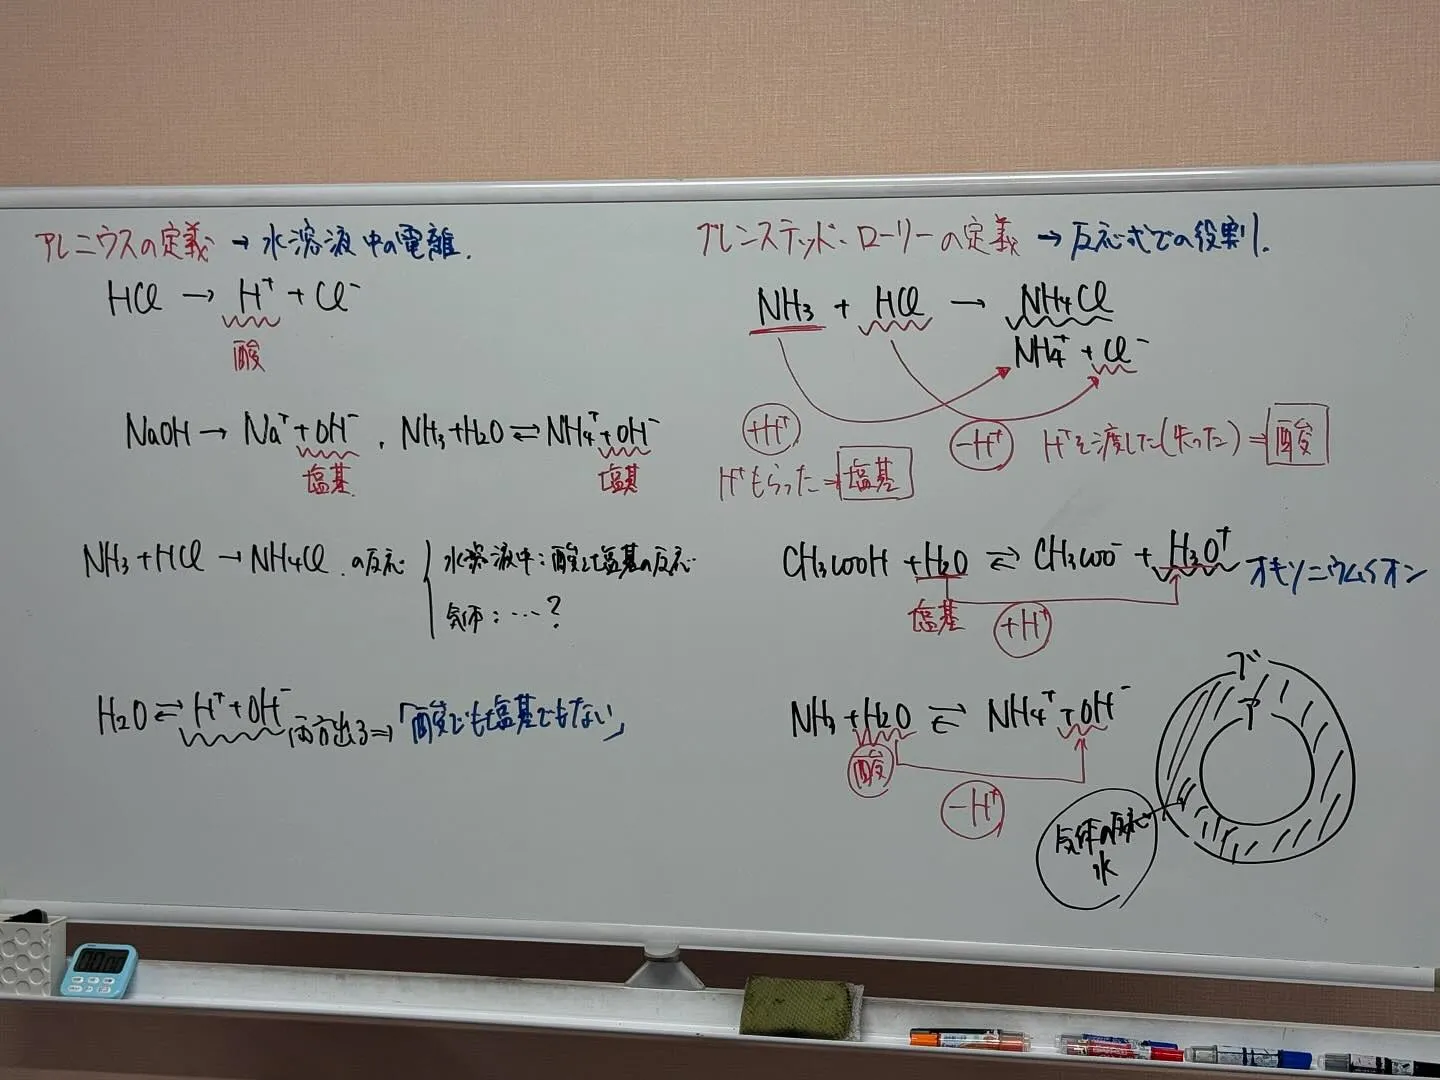 アレニウスの定義 → 水溶液中の電離.
HCl → H⁺ + Cl⁻
酸
NaOH → Na⁺ + OH⁻ , NH₃ + H₂O ⇄ NH₄⁺ + OH⁻
塩基 塩基
NH₃ + HCl → NH₄Cl の反応
水溶液中 : 酸と塩基の反応
気体 : … ?
H₂O ⇄ H⁺ + OH⁻ 両方出る ⇒ 「酸でも塩基でもない」
ブレンステッド・ローリーの定義 → 反応式での役割.
NH₃ + HCl → NH₄Cl
NH₄⁺ + Cl⁻
+H⁺ -H⁺ H⁺を渡した(失った) ⇒ 酸
H⁺もらった ⇒ 塩基
CH₃COOH + H₂O ⇄ CH₃COO⁻ + H₃O⁺ オキソニウムイオン
塩基 +H⁺
NH₃ + H₂O ⇄ NH₄⁺ + OH⁻
酸
-H⁺
ブ
ア
気体の反応
水